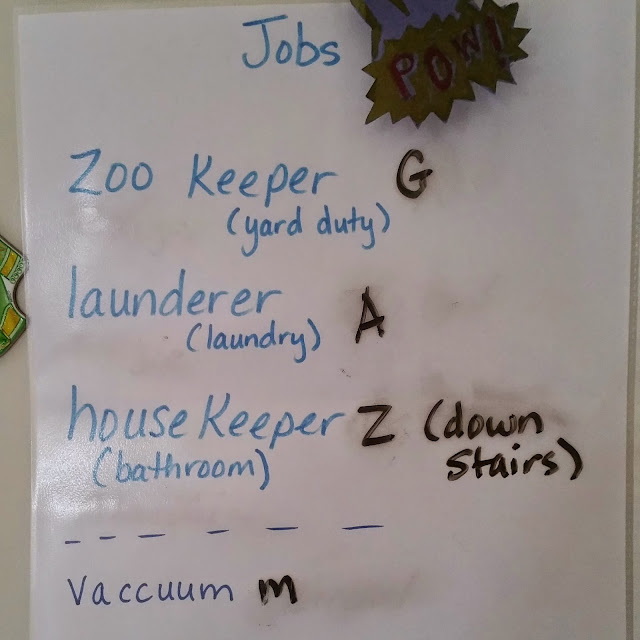 Jobs
POW!
Zoo Keeper G
(yard duty)
launderer A
(laundry)
house Keeper Z (down
(bathroom) Stairs)
Vaccuum m